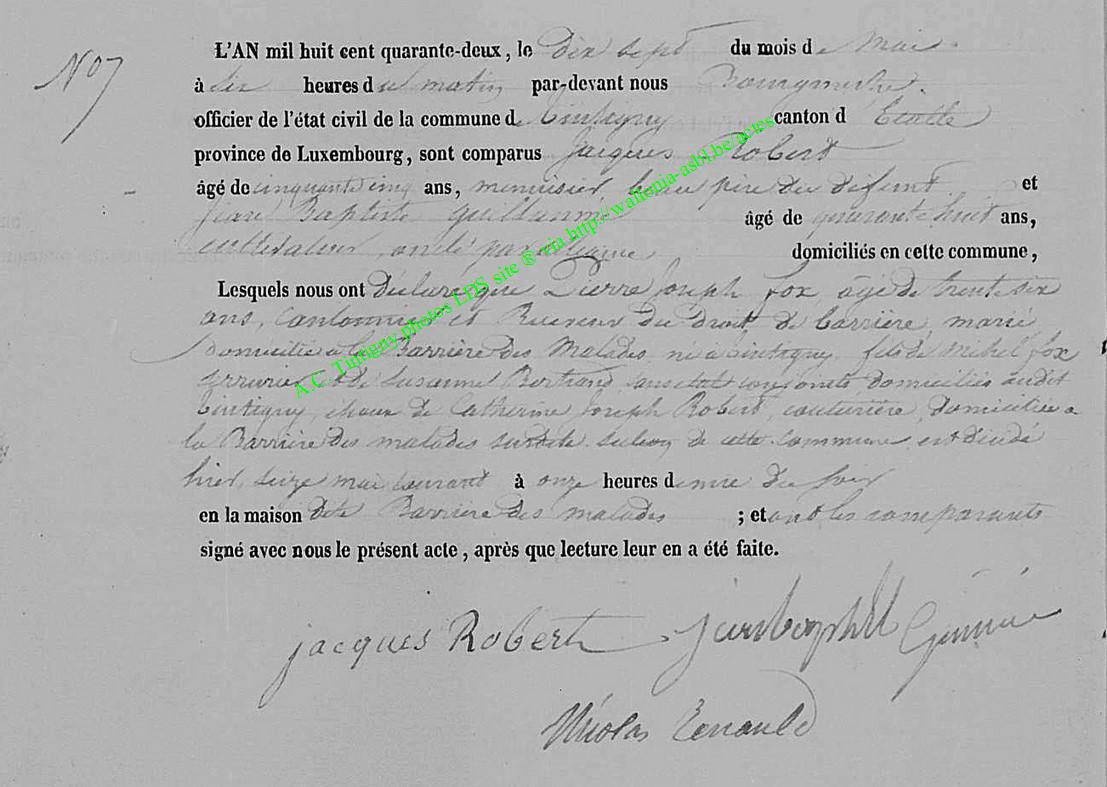 N° 7
L'AN mil huit cent quarante-deux, le dix sept du mois de Mai
à dix heures du matin par-devant nous Bourgmestre.
officier de l'état civil de la commune de Tintigny canton d'Etalle
province de Luxembourg, sont comparus Jacques Robert
âgé de cinquante cinq ans, menuisier beau père du défunt et
Jean Baptiste Guillaume âgé de quarante huit ans,
cultivateur, oncle domiciliés en cette commune,
Lesquels nous ont déclaré que Pierre Joseph Fox âgé de trente six
ans, Cantonnier et Receveur du Droit de Barrière, marié
domicilié à la Barrière des Malades, né à Tintigny, fils de Michel Fox
serrurier et de Susanne Bertrand, sans état conjoints domiciliés audit
Tintigny, époux de Catherine Joseph Robert, couturière, domiciliée a
la Barrière des malades susdite de cette commune est décédé
hier, seize mai courant à onze heures du soir
en la maison dite Barrière des malades ; et ont les comparants
signé avec nous le présent acte, après que lecture leur en a été faite.
jacques Robert
Nicolas
A.C. Tintigny photos LDS site ® via http://wallonia-asbl.be/actes